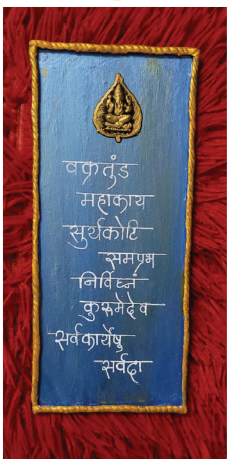 वक्रतुंड
महाकाय
सुर्यकोटि
समप्रभ
निर्विघ्नं
कुरूमेदेव
सर्वकार्येषु
सर्वदा